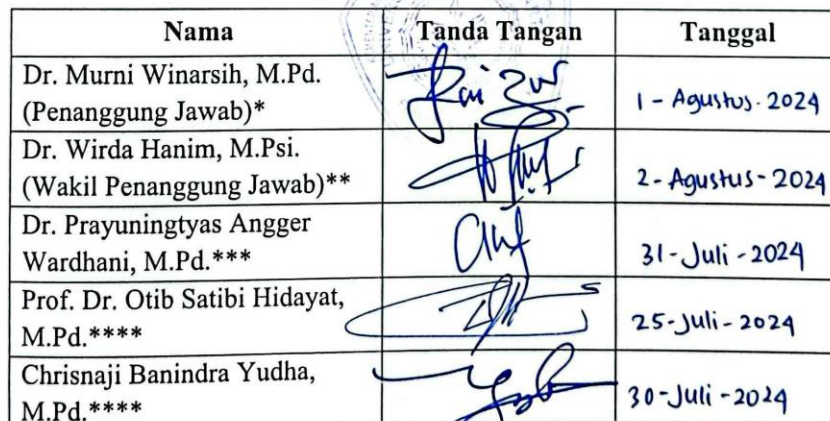 Nama Tanda Tangan Tanggal
Dr. Murni Winarsih, M.Pd.
(Penanggung Jawab)* 1 - Agustus - 2024
Dr. Wirda Hanim, M.Psi.
(Wakil Penanggung Jawab)** 2 - Agustus - 2024
Dr. Prayuningtyas Angger
Wardhani, M.Pd.*** 31 - Juli - 2024
Prof. Dr. Otib Satibi Hidayat,
M.Pd.**** 25 - Juli - 2024
Chrisnaji Banindra Yudha,
M.Pd.**** 30 - Juli - 2024